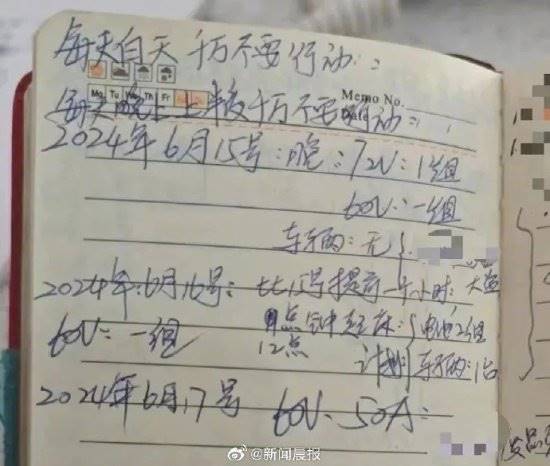 每天白天千万不要行动：
Mo Tu We Th Fr
Memo No.
Date
每天晚上上半夜千万不要行动：
2024年6月15号：晚：72V：1组
60V：一组
车子的：无
2024年6月16号：比15号提前一个小时：
点钟起床：电池2组
60V：一组
12点
计划车子的：1台
2024年6月17号 60V 50A：
@新闻晨报